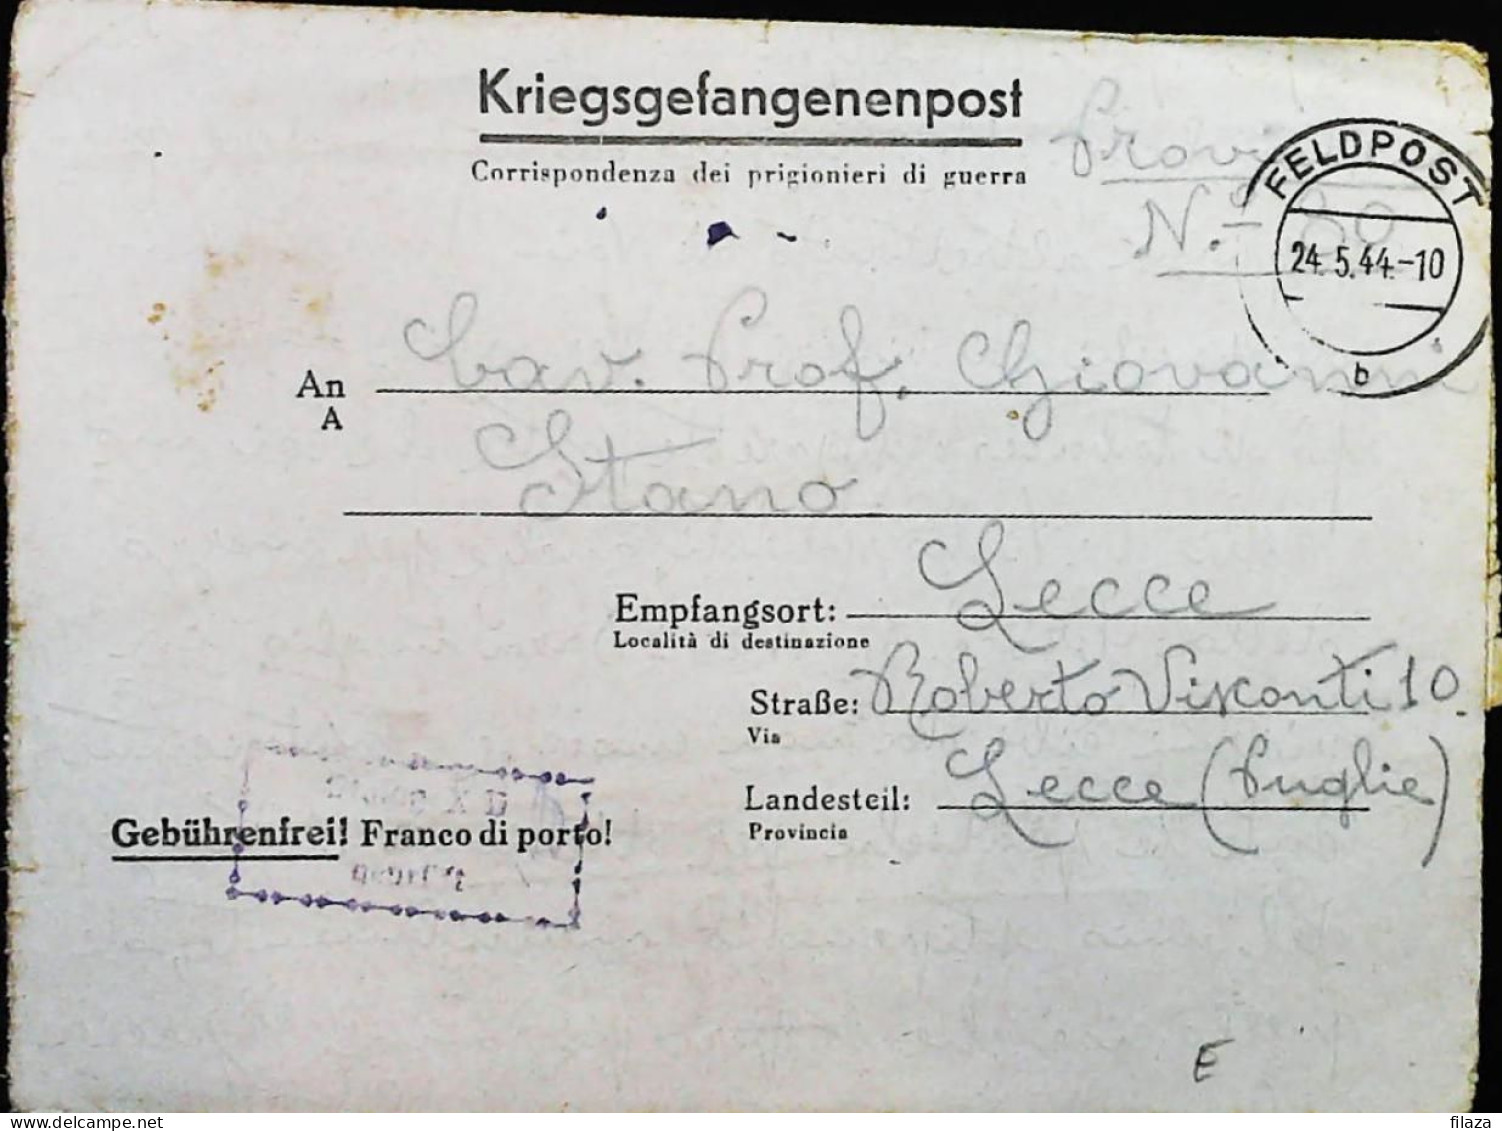 Kriegsgefangenenpost
Corrispondenza dei prigionieri di guerra
N.º 80
FELDPOST
24.5.44.-10
b
An Cav. Prof. Giovanni
A
Stano
Empfangsort: Lecce
Località di destinazione
Straße: Roberto Visconti 10.
Via
Landesteil: Lecce (Puglie)
Provincia
Gebührenfrei! Franco di porto!
E
delcampe.net
filaza